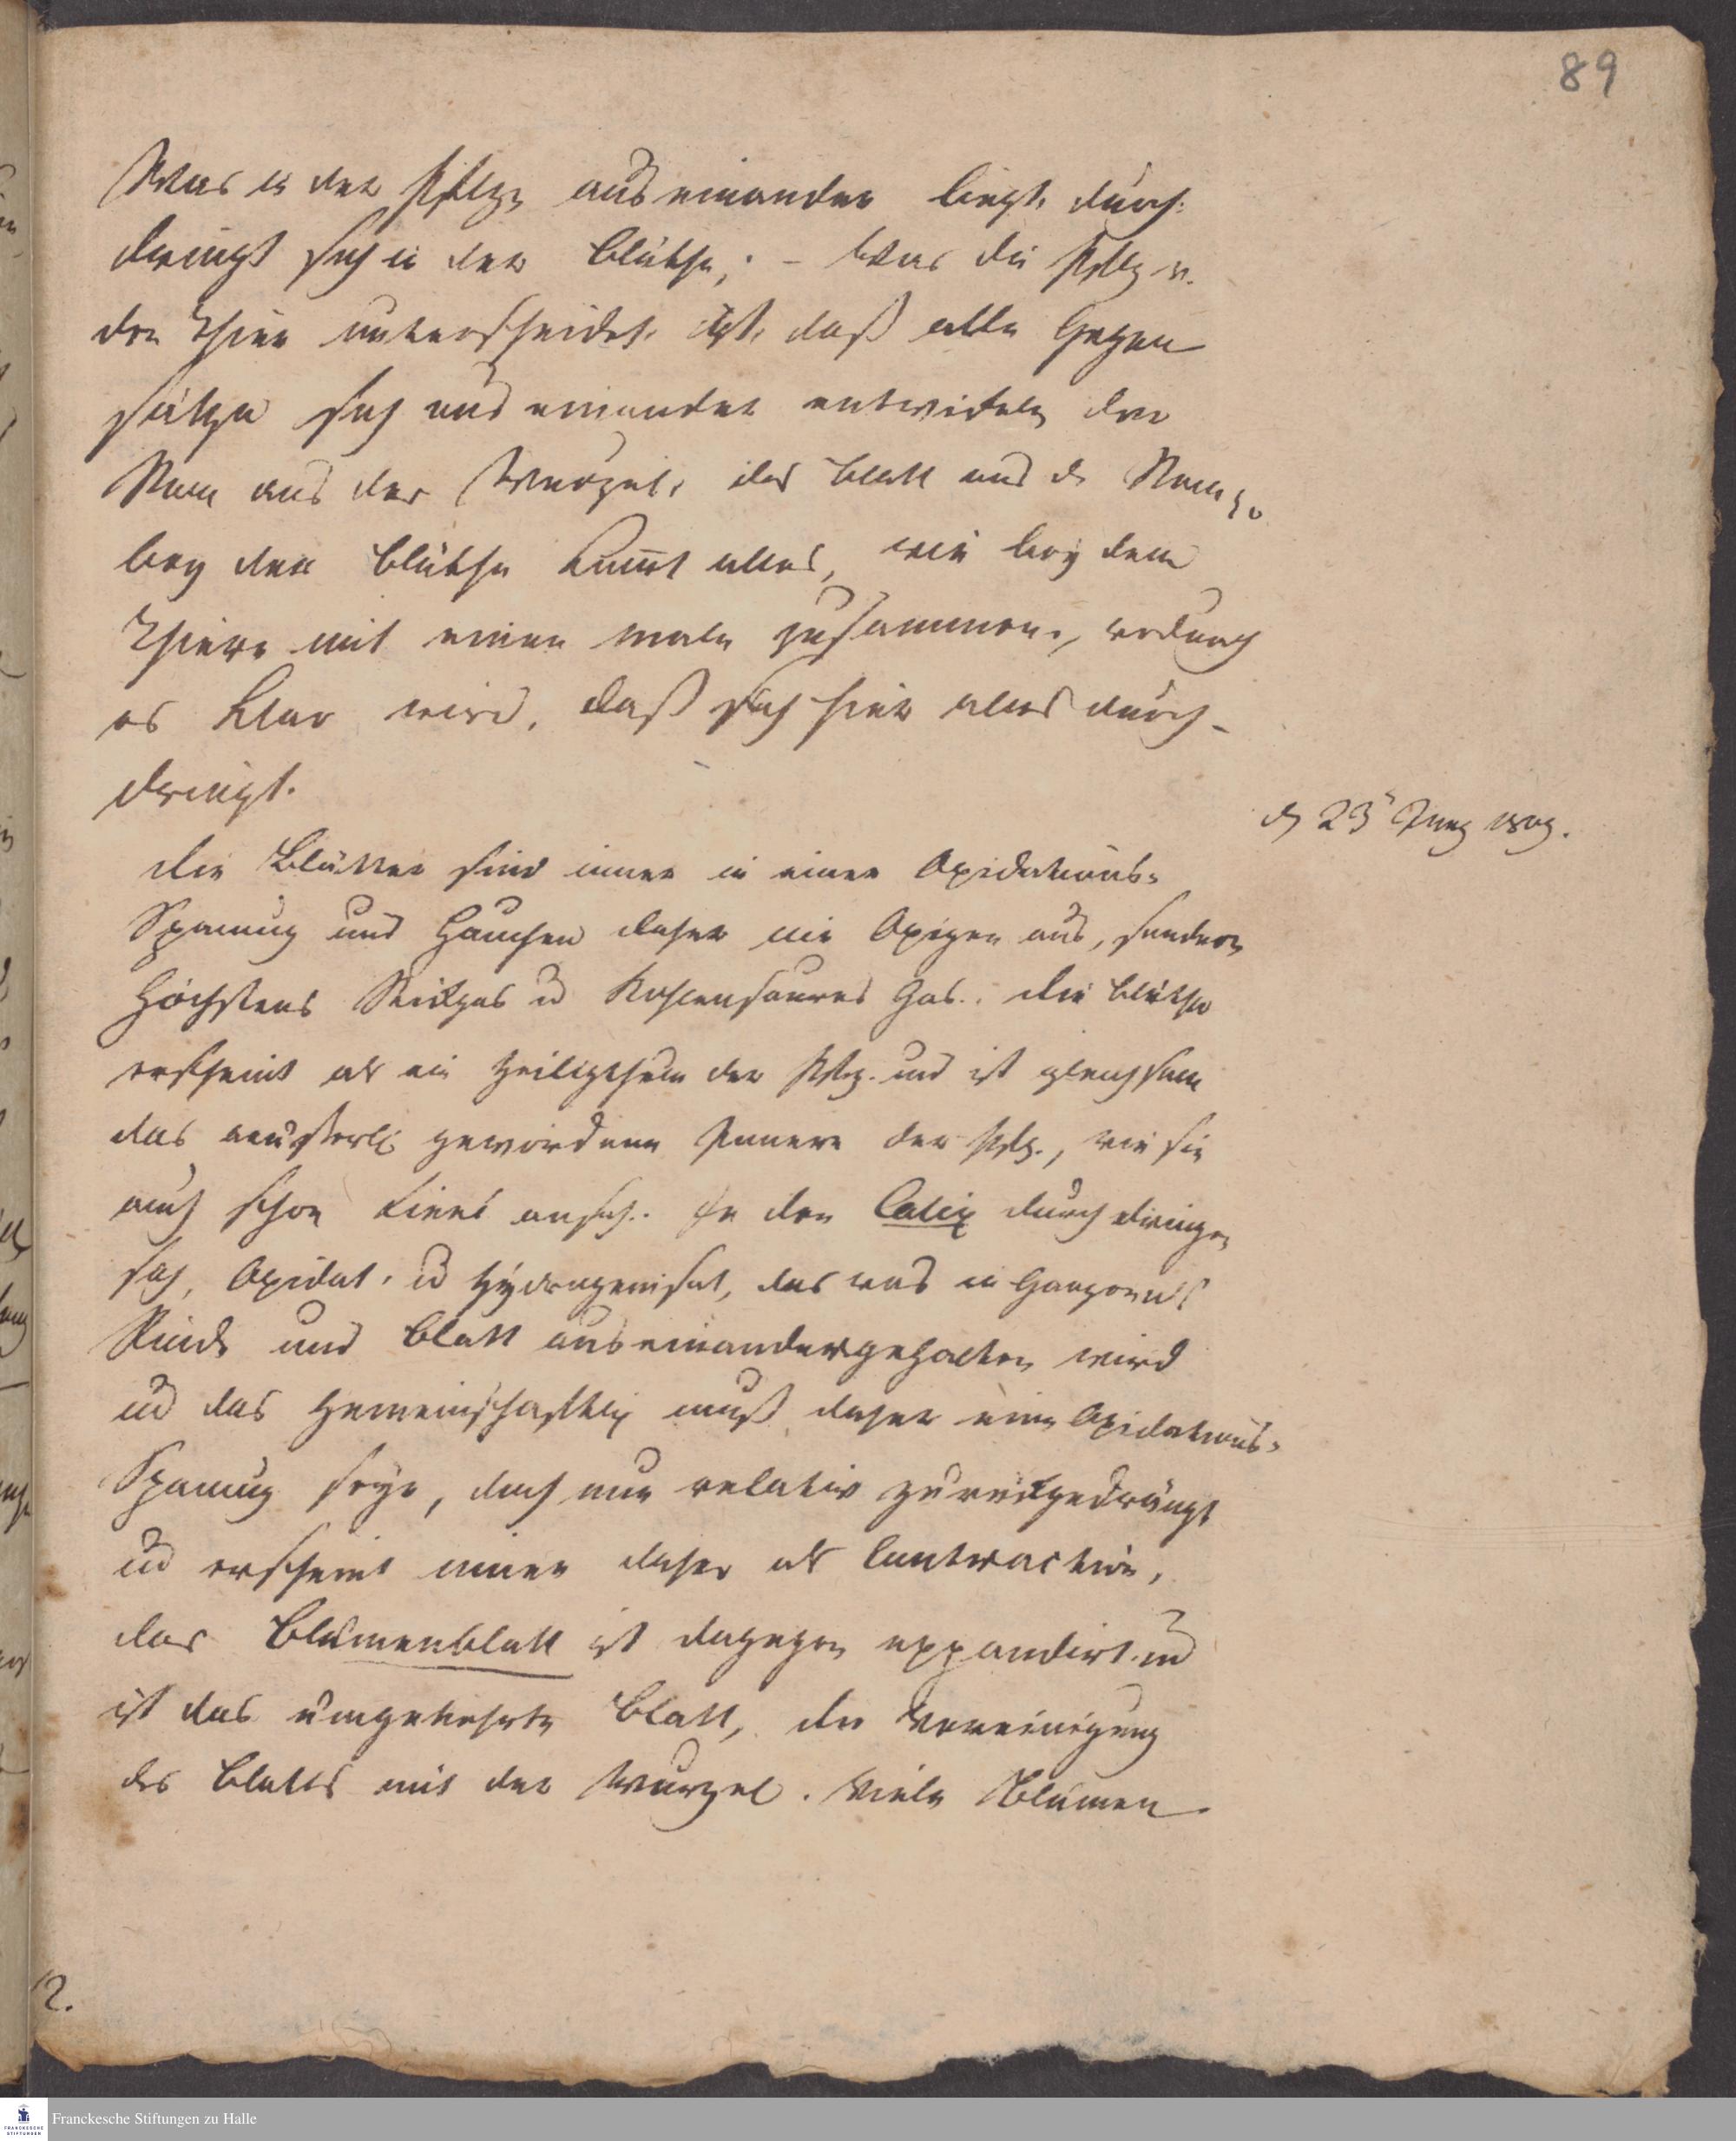 89
Was in der Pflze auseinander liegt, durch-
dringt sich in der Blüthe; – Was die Pflz v.
den Thier unterscheidet, ist, daß alle Gegen
sätze sich aus einander entwikeln der
Stam aus der Wurzel, das Blatt aus d. Stam
bey der Blüthe kommt alles, wie bey dem
Thiere mit einem male zusammen, wodurch
es klar wird, daß sich hier alles durch-
dringt.
d 23 Juny 1809.
Die Blätter sind immer in einer Oxidations-
Spannung und hauchen daher nie Oxigen aus, sondern
höchstens Stickgas u Kohlensaures Gas. Die Blüthe
erscheint als ein Heiligthum der Pflz. und ist gleichsam
das äusserlich gewordene Innere der Pflz., wie sie
auch schon Linné ansah. In den Calix durch dringen
sich, Oxidat. u Hydrogenisat, das was in
Rinde und Blatt auseinandergehalten wird
u das Gemeinschaftlich muß daher eine Oxidations-
Spannung seyn, doch nur relativ zurückgedrängt
u erscheint immer daher als Contraction,
das Blumenblatt ist dagegen expandirt u
ist das umgekehrte Blatt, die Vereinigung
des Blatts mit der Wurzel. Viele Blumen
2.
Franckesche Stiftungen zu Halle